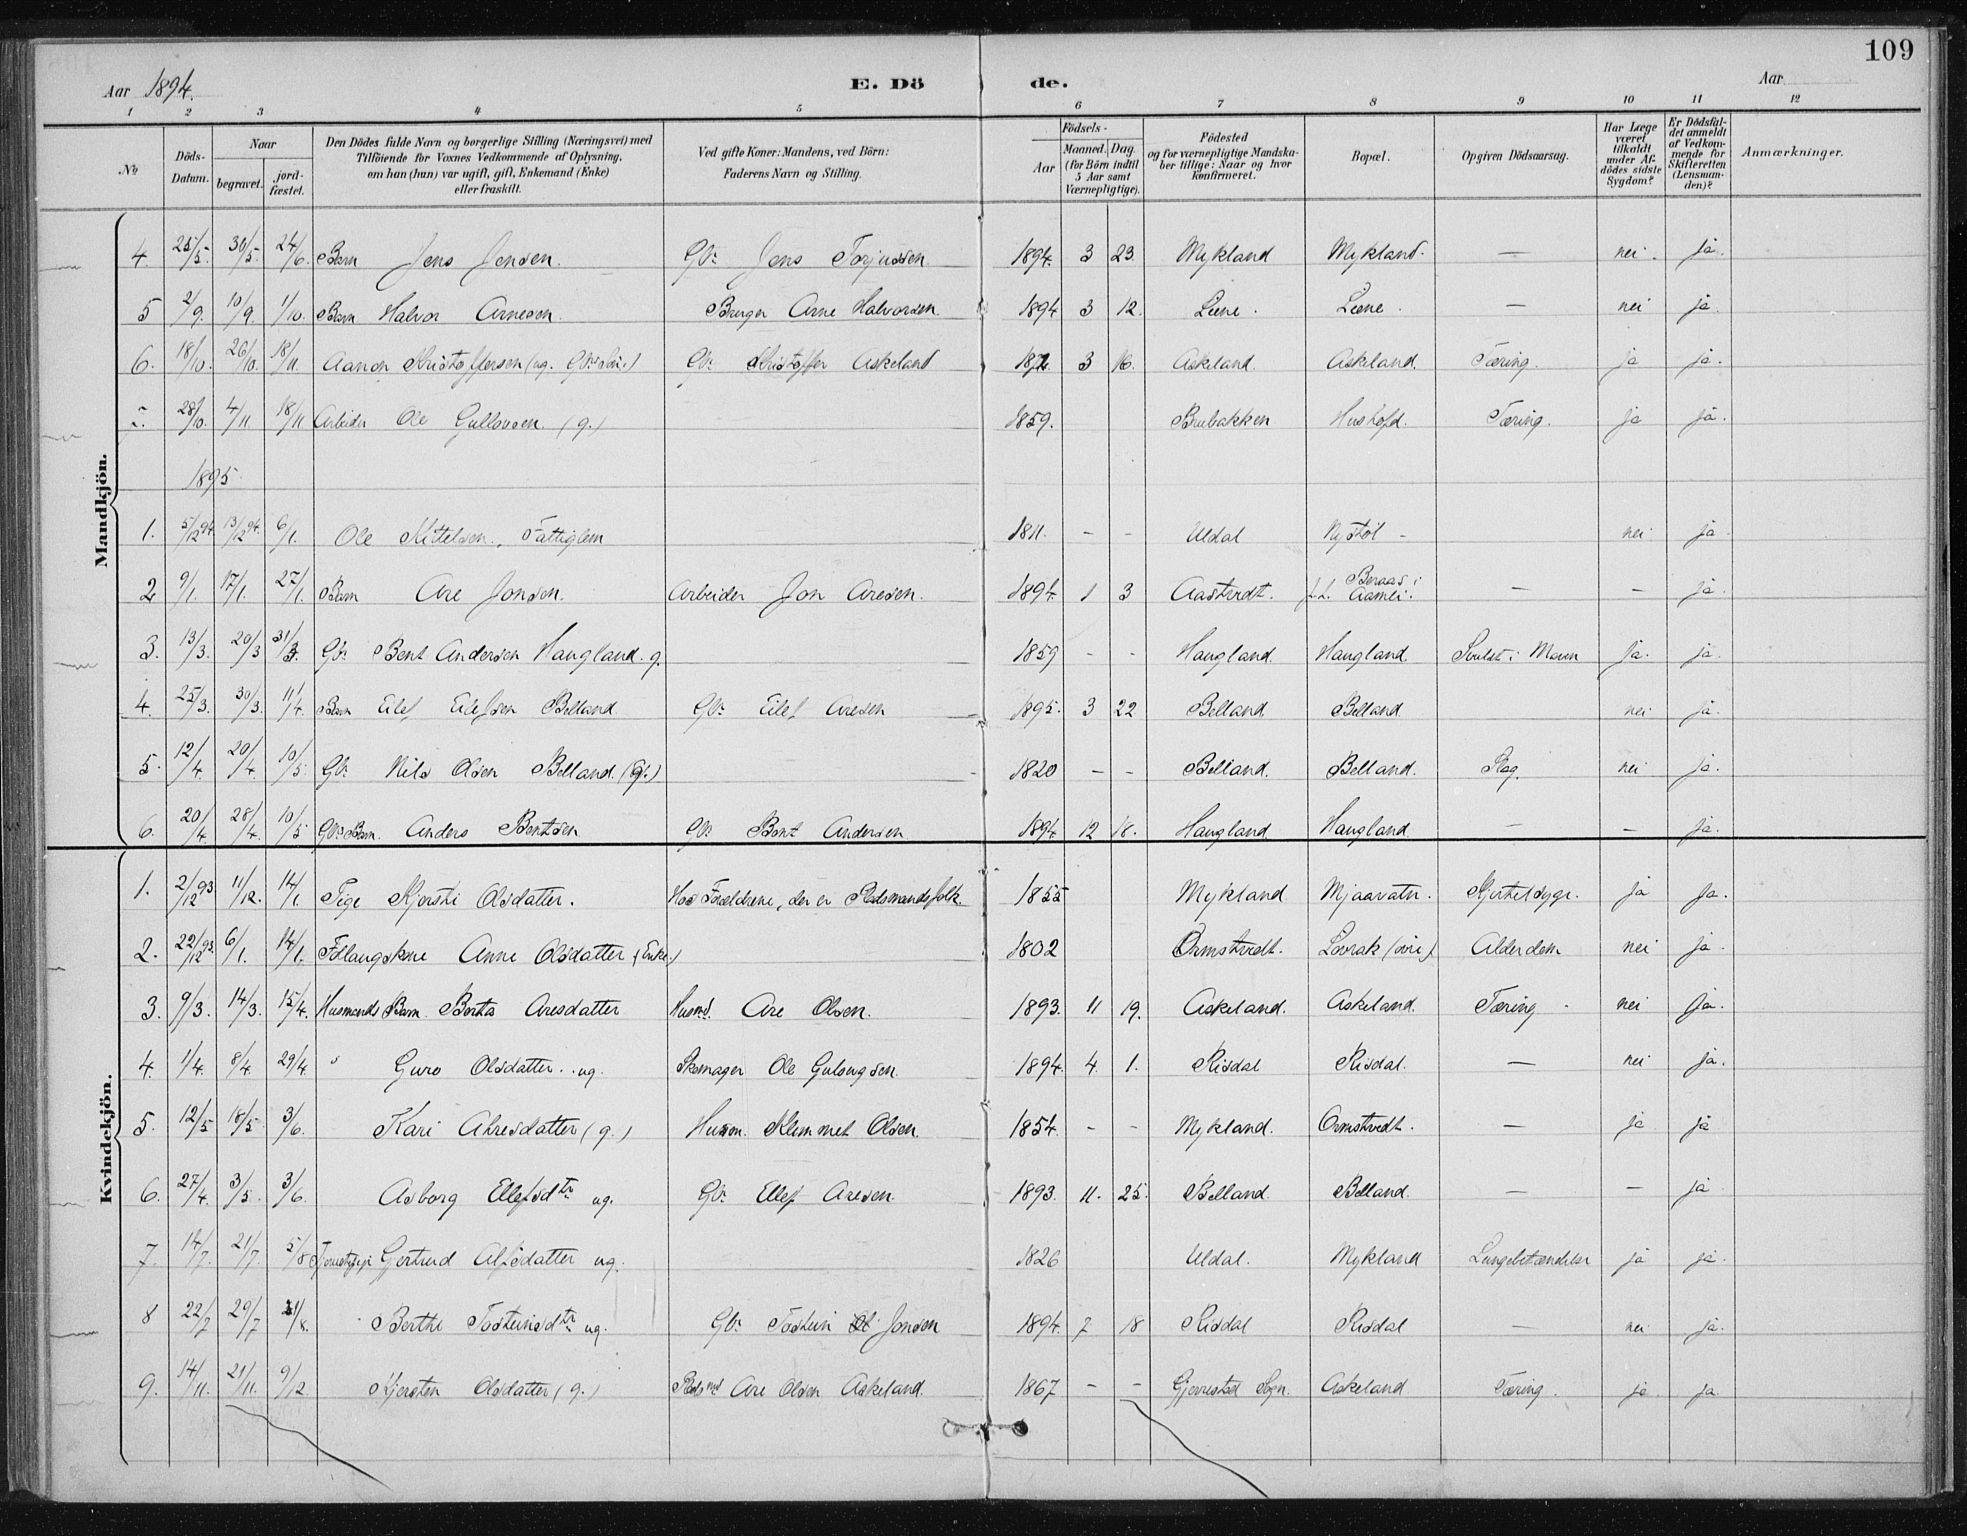 109
Aar 1894.
E. Dö de.
Aar
1 2 3 4 5 6 7 8 9 10 11 12
No
Döds-Datum.
Naar
begravet.
jord-fæstet.
Den Dödes fulde Navn og borgerlige Stilling (Næringsvei) med Tilföiende for Voxnes Vedkommende af Oplysning, om han (hun) var ugift, gift, Enkemand (Enke) eller fraskilt.
Ved gifte Koner: Mandens, ved Börn: Faderens Navn og Stilling.
Födsels-
Aar
Maaned. Dag.
(for Börn indtil 5 Aar samt Værnepligtige).
Födested og for værnepligtige Mandskaber tillige: Naar og hvor Konfirmeret.
Bopæl.
Opgiven Dödsaarsag.
Har Læge været tilkaldt under Afdödes sidste Sygdom?
Er Dödsfaldet anmeldt af Vedkommende for Skifteretten (Lensmanden)?
Anmærkninger.
Mandkjön.
4. 25/5. 30/5. 24/6. Barn Jens Jensen. Gbr. Jens Torjussen 1894. 3 23. Mykland Mykland. — nei. ja.
5 2/9. 10/9. 1/10. Barn Halvor Arnesen. Bruger Arne Halvorsen. 1894 3 12. Liene. Liene. — nei ja.
6. 18/10. 26/10. 18/11. Aanon Kristoffersen (ug. Gbr. Søn.) Gbr. Kristoffer Askeland 3 16. Askeland. Askeland. Tæring. ja ja.
7. 28/10. 4/11 18/11 Arbeider Ole Gullovsen (g.) 1859. Brubakken Tæring. ja ja.
1895
1. 5/12 94 13/12 94. 6/1. Ole Kittelsen, Fattiglem 1811. - - Uldal Nystøl - nei ja.
2 9/1. 17/1. 27/1. Barn Are Jonsen. Arbeider Jon Aresen. 1894. 1 3 Aastvedt. — — ja.
3. 13/3. 20/3 31/3. Gbr. Bent Andersen Haugland. g. 1859 - - Haugland. Haugland. Svulst i Maven ja. ja.
4. 25/3. 30/3. 11/4. Barn Eilef Eilefsen Belland Gbr. Eilef Aresen 1895. 3 22 Belland. Belland. nei ja.
5. 12/4 20/4. 10/5. Gbr. Nils Olsen Belland. (g.) 1820 - - Belland. Belland. Slag. nei ja.
6. 20/4. 28/4. 10/5 Gbr. Barn. Anders Bentsen Gbr. Bent Andersen 1894 12 18. Haugland Haugland — — ja.
Kvindekjön.
1. 2/12 93 11/12. 14/1. Pige Kjersti Olsdatter. Hos Forældrene, der er Pladsmandsfolk. 1855 Mykland Mjaavatn. Kjertelsyge. ja ja.
2. 22/12 93. 6/1. 14/1. Anne Olsdatter (Enke) 1802 Ormstvedt. Lovrak (øvre). Alderdom nei ja.
3. 9/3. 14/3. 15/4. Husmands Barn Berta Aresdatter Husmd. Are Olsen. 1893. 11 19. Askeland. Askeland. Tæring nei ja.
4. 1/4. 8/4. 29/4. " Guro Olsdatter. ug. Skomager Ole Gulougsen. 1894. 4. 1. Risdal Risdal. — nei ja.
5. 12/5 18/5 3/6. Kari Ahresdatter (g.) Husm. Klemmet Olsen. 1854. - - Mykland. Ormstvedt. — ja ja
6. 27/4. 3/5. 3/6. Asborg Ellefsdtr ug. Gbr. Ellef Aresen 1893. 11. 25. Belland. Belland. — — ja
7. 14/7. 21/7. 5/8 Tjenestepige Gjertrud Alfsdatter ug. 1826 Uldal. Mykland Lungebetændelse ja ja.
8 22/7 29/7 Berthe Tosteinsdtr. ug. Gbr. Tostein Jonsen 1894. 7 18 Risdal Risdal — nei ja.
9. 14/11. 21/11. 9/12. Kjersten Olsdatter (g.) Pladsmd Are Olsen Askeland. 1867 - - Gjerrestad Sogn. Askeland Tæring. ja. ja.